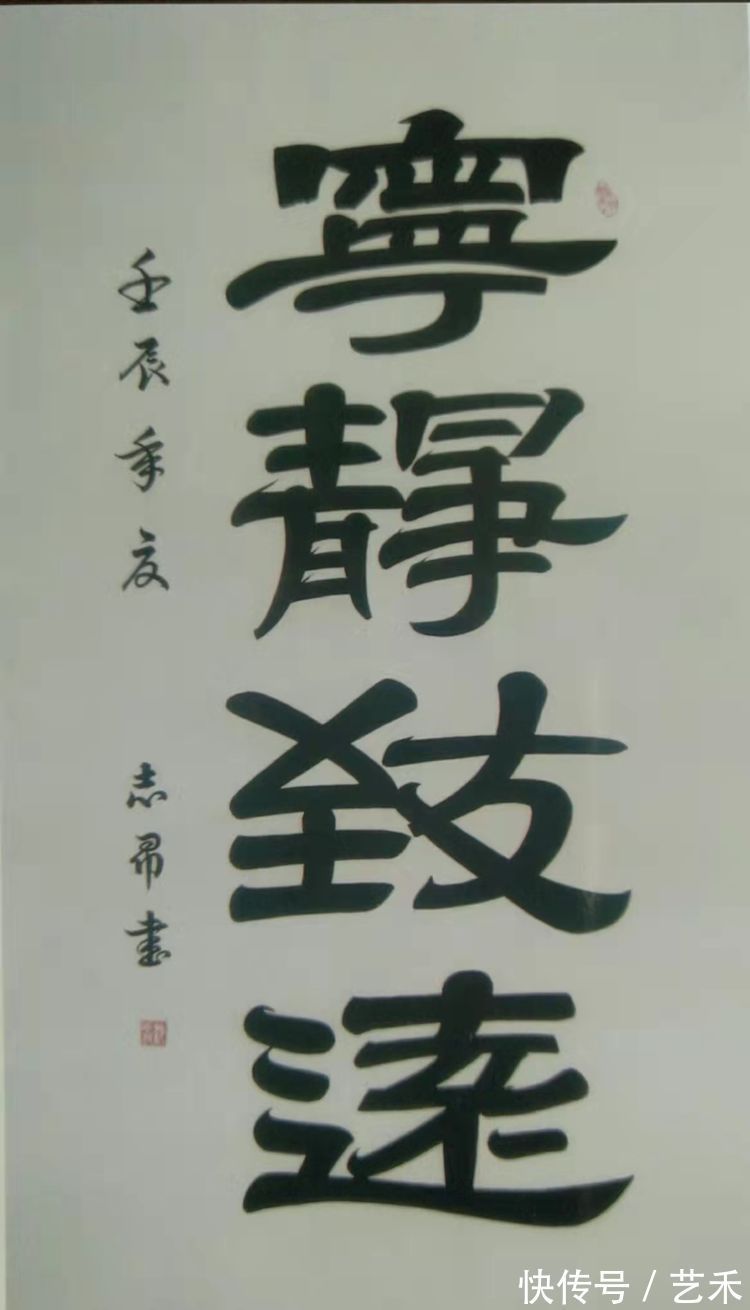 寧靜致遠
壬辰年夏
志昂書
快传号 / 艺禾